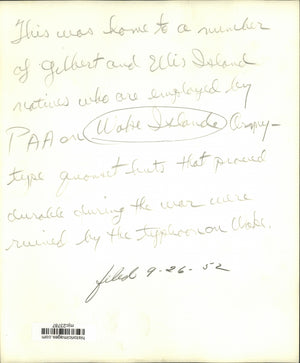 This was home to a number
of Gilbert and Ellis Island
natives who are employed by
PAA on Wake Island. Army-
type quonset huts that proved
durable during the war were
ruined by the typhoon on Wake.
filed 9-26-52
historicimages.com